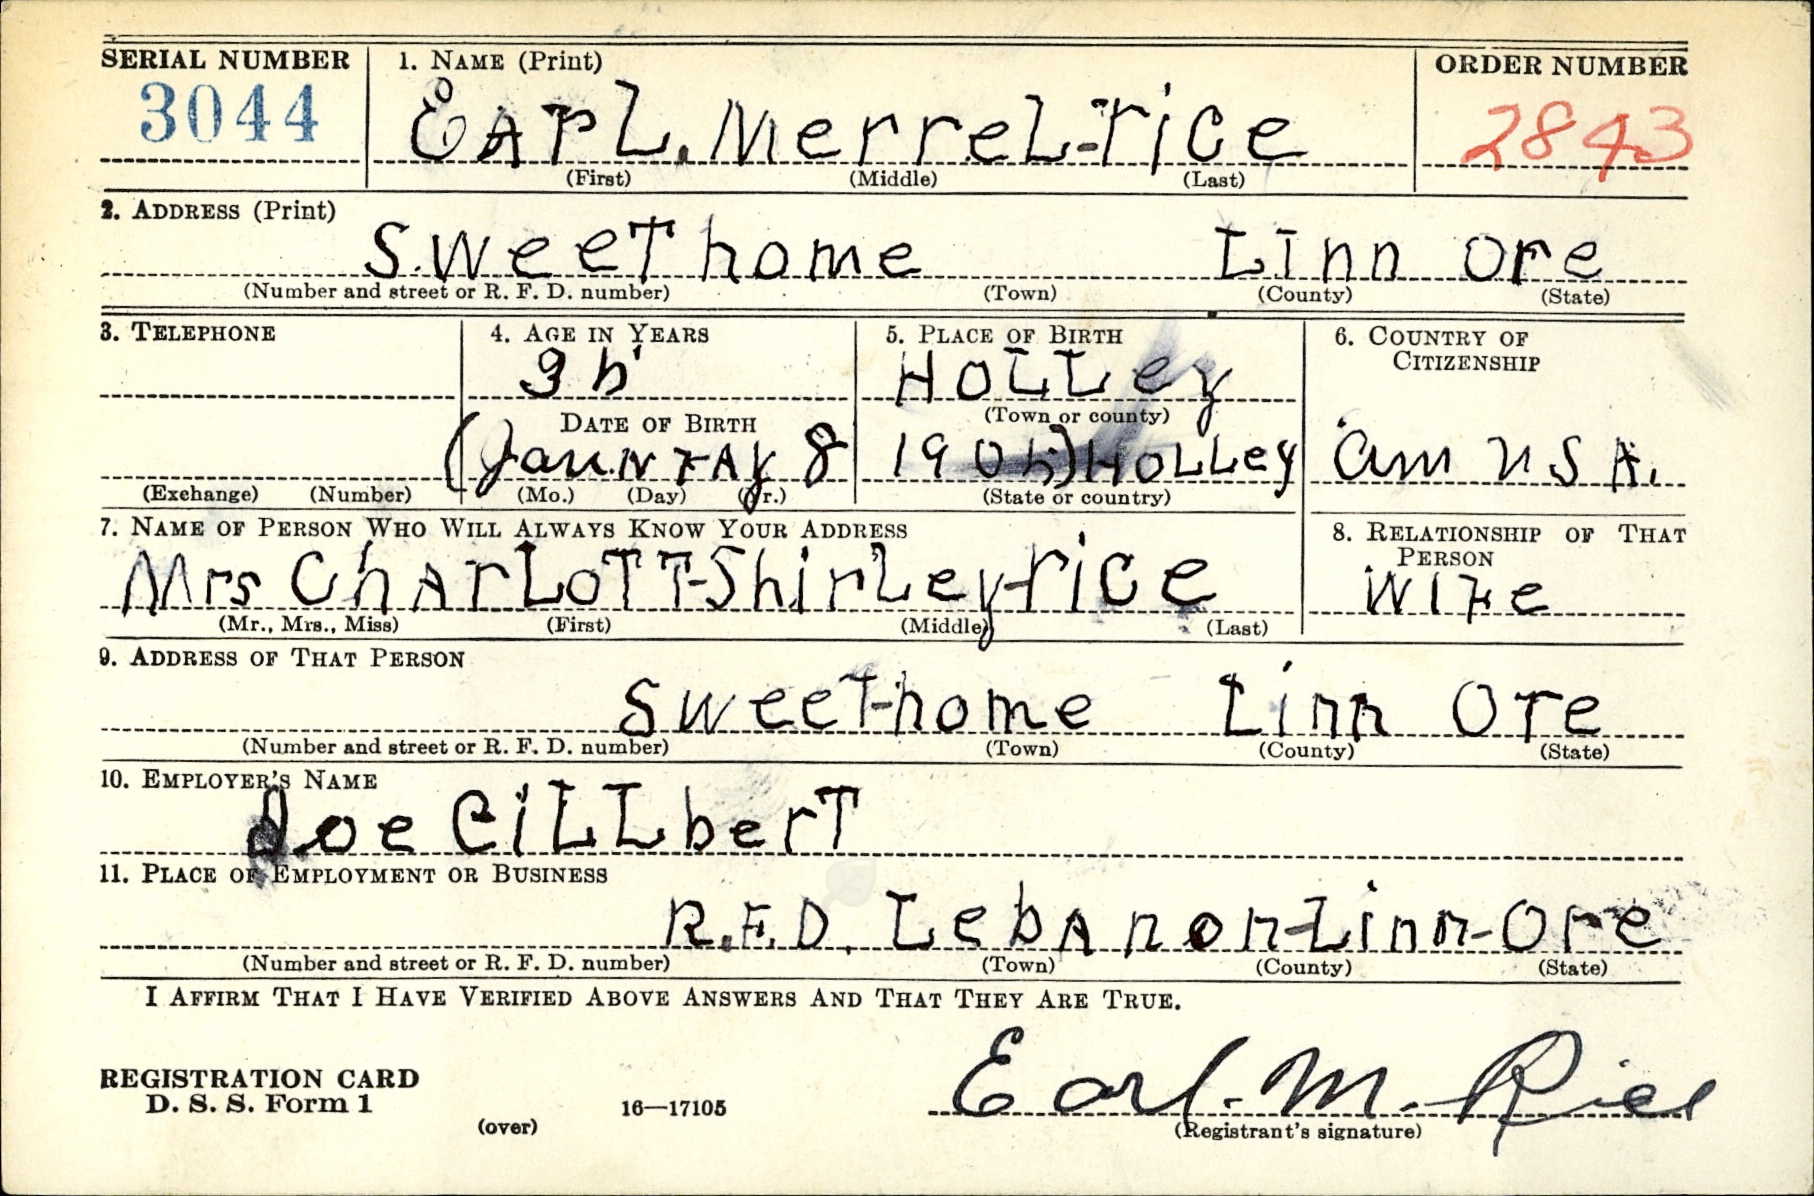 SERIAL NUMBER 1. NAME (Print) ORDER NUMBER
3044 EArL. MerreL-rice 2843
(First) (Middle) (Last)
2. ADDRESS (Print)
S.weeT home Linn Ore
(Number and street or R. F. D. number) (Town) (County) (State)
3. TELEPHONE 4. AGE IN YEARS 5. PLACE OF BIRTH 6. COUNTRY OF CITIZENSHIP
35 HOLLey
DATE OF BIRTH (Town or county)
(Januray 8 1905) HOLLey am U S A.
(Exchange) (Number) (Mo.) (Day) (Yr.) (State or country)
7. NAME OF PERSON WHO WILL ALWAYS KNOW YOUR ADDRESS 8. RELATIONSHIP OF THAT PERSON
Mrs CHArLoTT-ShirLey-rice wife
(Mr., Mrs., Miss) (First) (Middle) (Last)
9. ADDRESS OF THAT PERSON
SweeT-home Linn Ore
(Number and street or R. F. D. number) (Town) (County) (State)
10. EMPLOYER'S NAME
Joe GiLLberT
11. PLACE OF EMPLOYMENT OR BUSINESS
R.F.D. LebAnon-Linn-Ore
(Number and street or R. F. D. number) (Town) (County) (State)
I AFFIRM THAT I HAVE VERIFIED ABOVE ANSWERS AND THAT THEY ARE TRUE.
REGISTRATION CARD
D. S. S. Form 1 Earl. M. Rice
(over) 16—17105 (Registrant's signature)